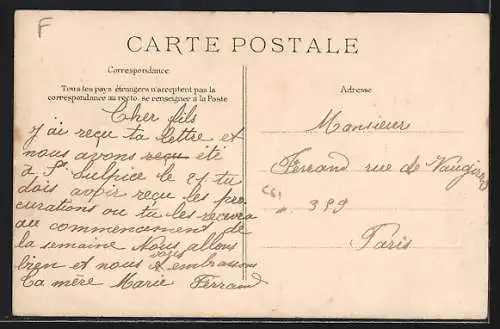 F
CARTE POSTALE
Correspondance
Tous les pays étrangers n'acceptent pas la
correspondance au recto. se renseigner à la Poste
Adresse
Cher fils
J'ai reçu ta lettre et
nous avons reçu été
à St Sulpice le 21 tu
dois avoir reçu les pro
curations ou tu les recevra
au commencement de
la semaine Nous allons
bien et nous t'embrassons
Ta mère Marie Ferrand
Monsieur
Ferrand rue de Vaugirard
389
Paris